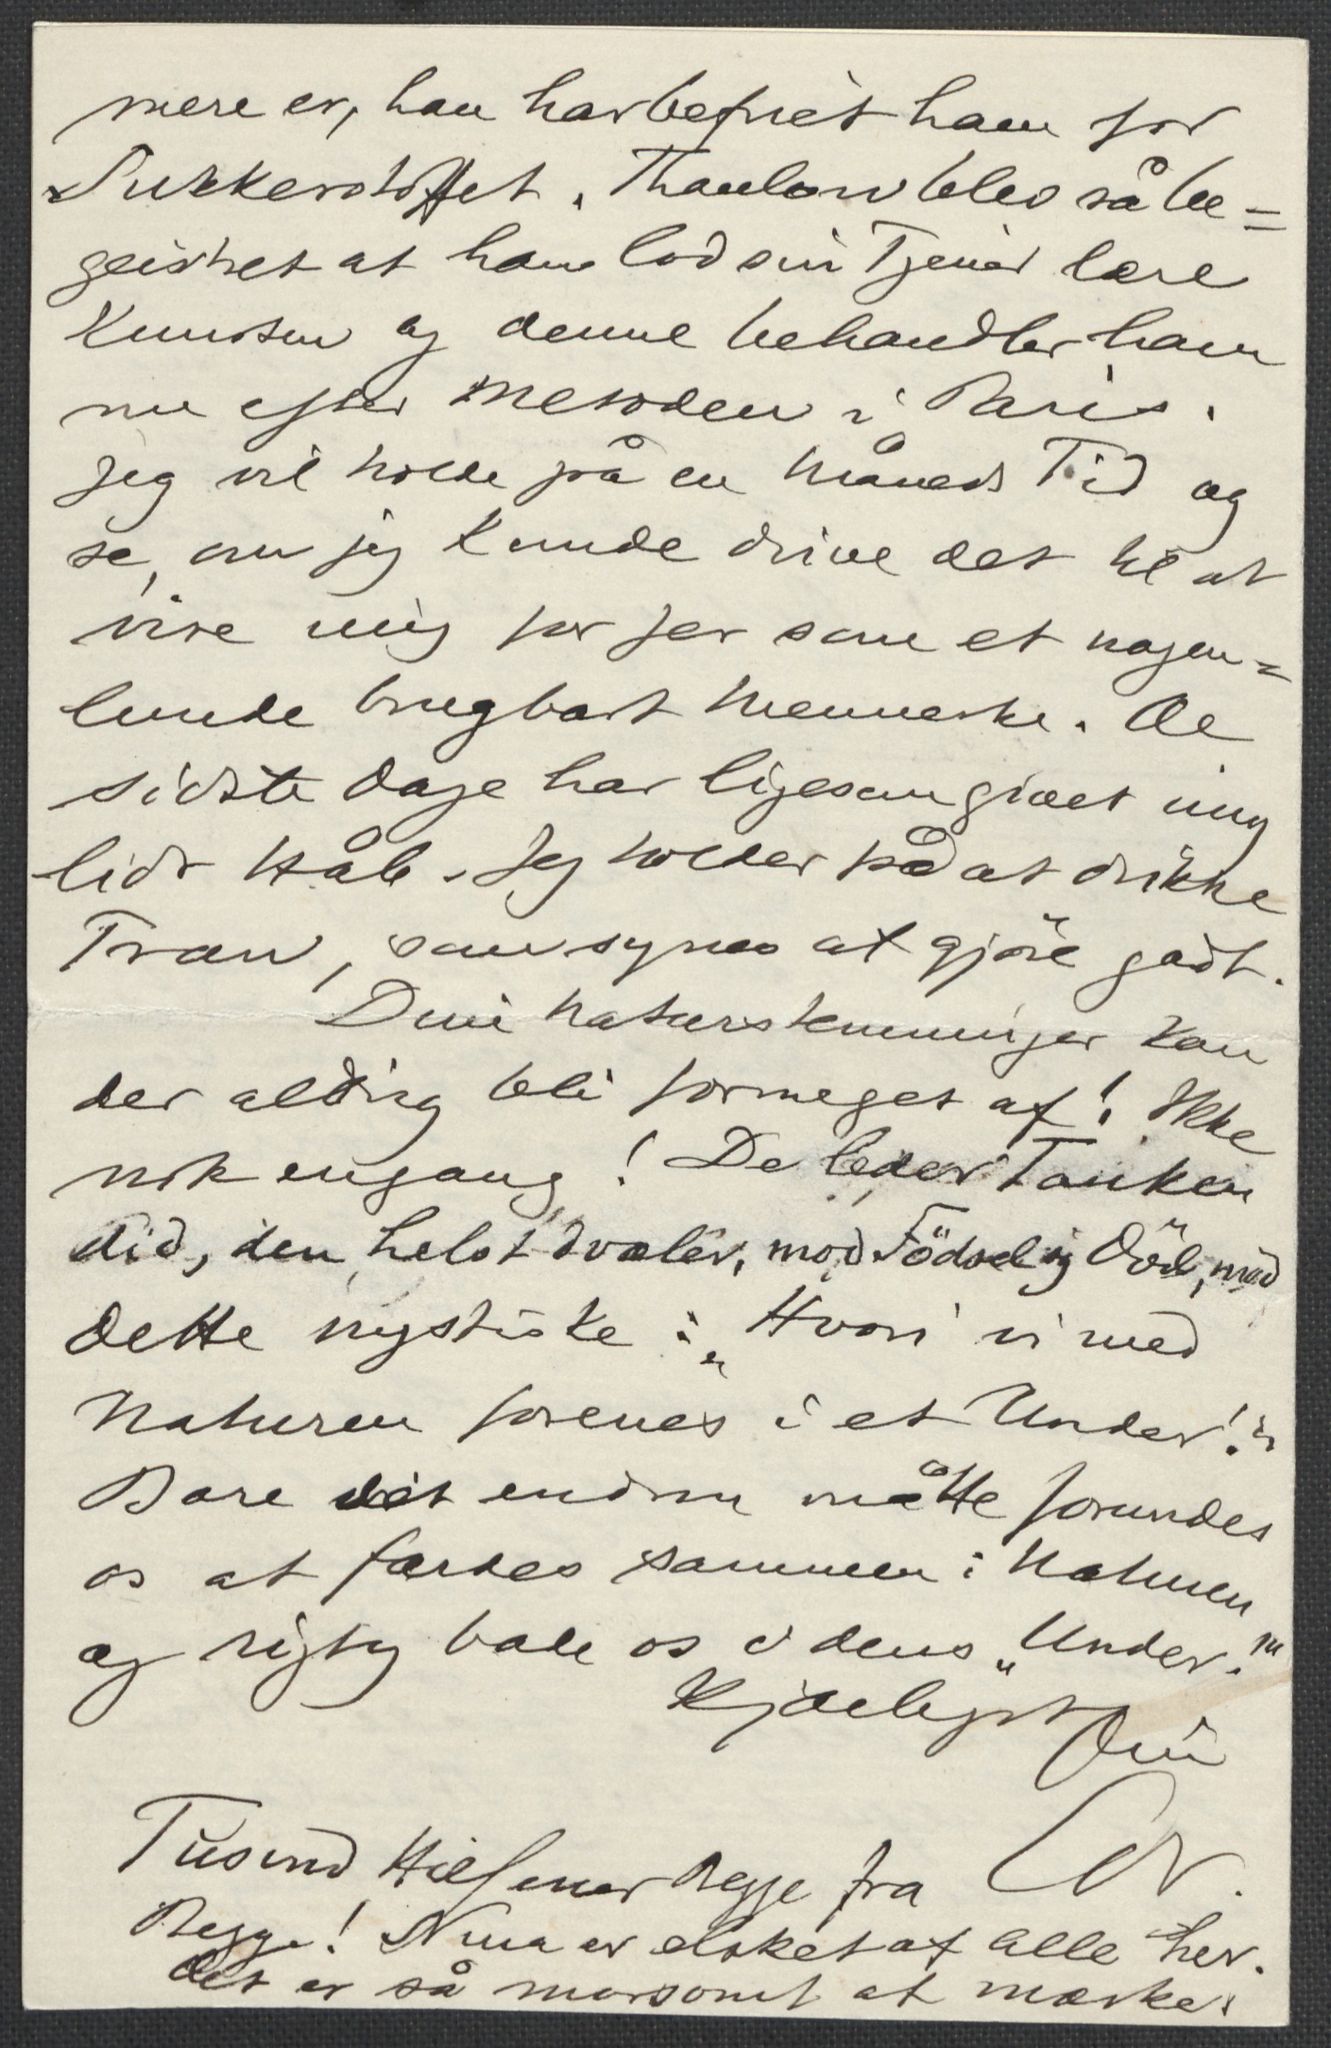 mere er, han har befriet ham for
Sukkerstoffet. Thaulow blev så be=
geistret at han lod sin Tjener lære
Kunsten og denne behandler ham
nu efter Metoden i Paris.
Jeg vil holde på en Måneds Tid og
se, om jeg kunde drive det til at
vise mig for Jer som et nogen=
lunde brugbart Menneske. De
sidste Dage har ligesom givet mig
lidt Håb. Jeg holder på at drikke
Tran, som synes at gjöre godt.
Dine Naturstemninger kan
der aldrig bli formeget af! Ikke
nok engang! De leder Tanken
did, den helst dvæler, mod Födsel og Död, mod
dette mystiske: „Hvori vi med
Naturen forenes i et Under!"
Bare det endnu måtte forundes
os at færdes sammen i Naturen
og rigtig bade os i dens „Under."
Kjærligst Din
EdV.
Tusind Hilsener Begge fra
Begge! Nina er elsket af alle her.
Det er så morsomt at mærke.